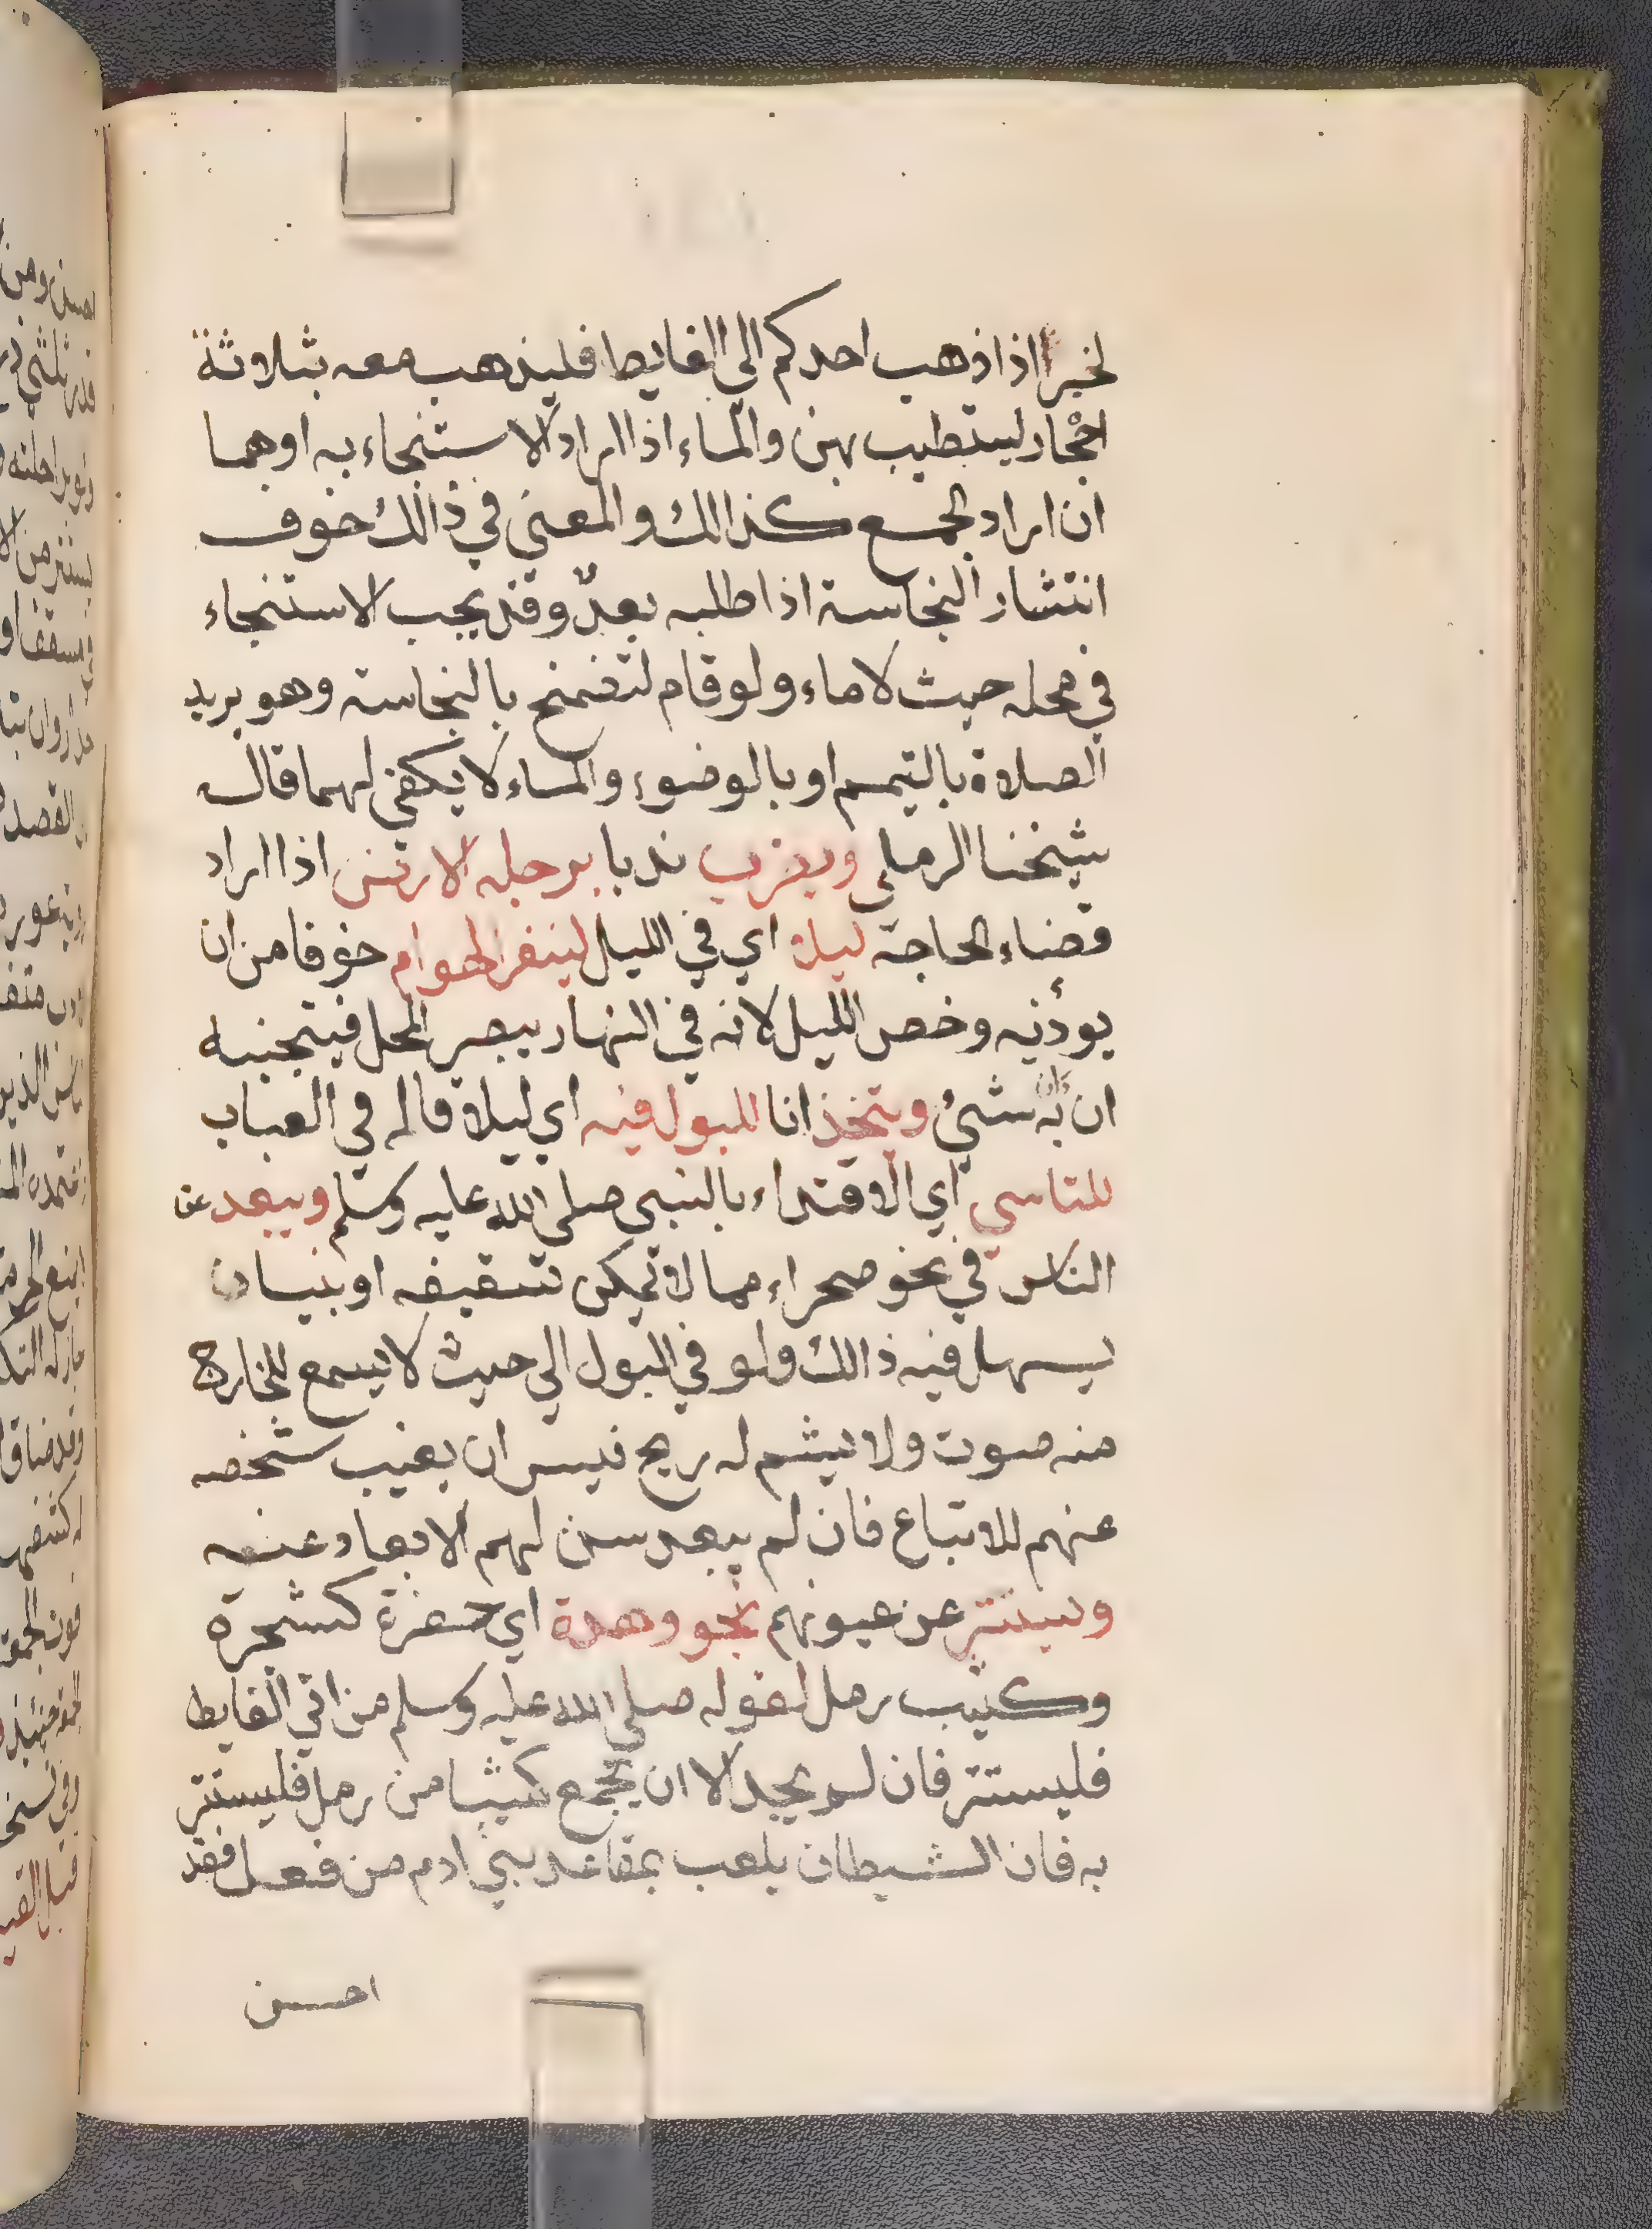 لخبر اذا ذهب احدكم الي الغايط فليذهب معه بثلاثة
احجار ليستطيب بهن والماء اذا اراد الاستنجاء به اوهما
ان اراد الجمع كذالك والمعني في ذالك خوف
انتشار النجاسة اذا طلبه بعد وقد يجب الاستنجاء
في محله حيث لا ماء ولو قام لتضمخ بالنجاسة وهو يريد
الصلاة بالتيمم او بالوضوء والماء لا يكفي لهما قال
شيخنا الرملي ويضرب ندبا برجله الارض اذا اراد
قضاء الحاجة ليلا اي في الليل لينفر الهوام خوفا من ان
يوذيه وخص الليل لانه في النهار يبصر المحل فيتجنبه
ان كان به شيء ويتخذ انا للبول فيه اي ليلا قاله في العباب
للتاسي اي الاقتداء بالنبي صلى الله عليه وسلم ويبعد عن
الناس في نحو صحراء مما لا تمكن تسقيفه او بنيان
يسهل فيه ذالك ولو في البول الي حيث لا يسمع للخارج
منه صوت ولا يشم له ريح فيسن ان يغيب شخصه
عنهم للاتباع فان لم يبعد سن لهم الابعاد عنه
ويستتر عن عيونهم بنحو وهدة اي حفرة كشجرة
وكثيب رمل لقوله صلي الله عليه وسلم من اتي الغايط
فليستتر فان لم يجد الا ان يجمع كثيبا من رمل فليستتر
به فان الشيطان يلعب بمقاعد بني ادم من فعل فقد
احسن